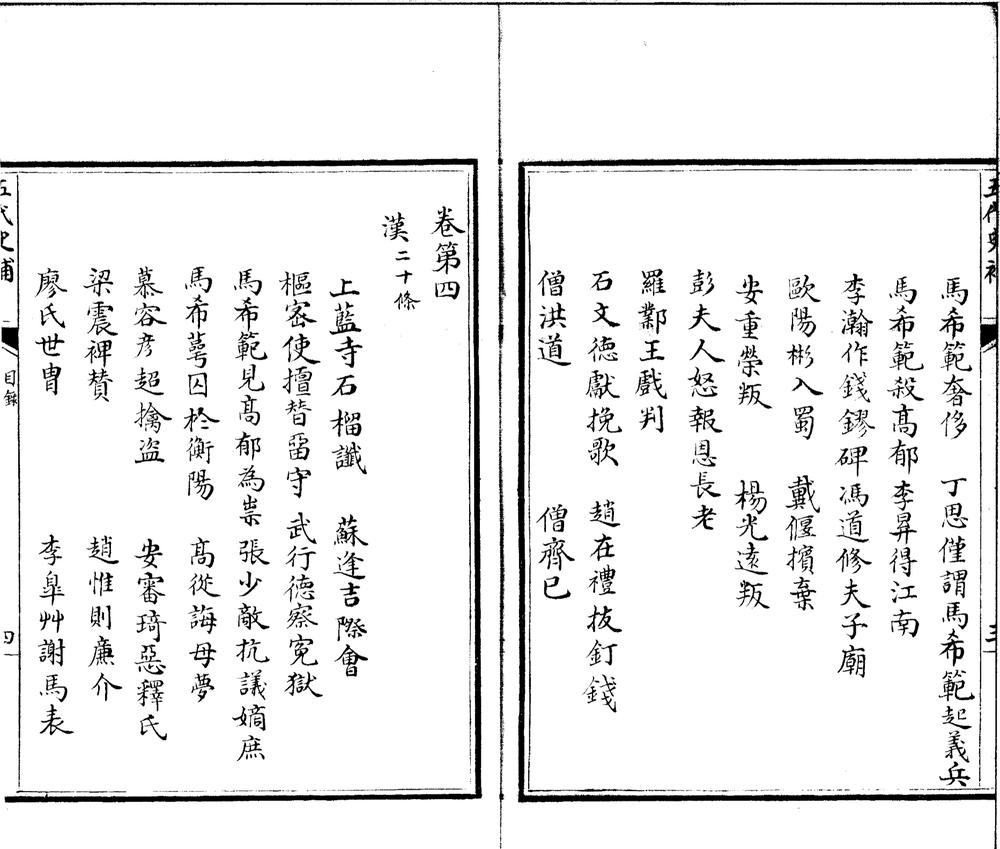 五代史補
三
馬希範奢侈　丁思僅謂馬希範起義兵
馬希範殺髙郁　李昇得江南
李瀚作錢鏐碑　馮道修夫子廟
歐陽彬入蜀　戴偃擯棄
安重榮叛　楊光逺叛
彭夫人怒報恩長老
羅鄴王戲判
石文徳獻挽歌　趙在禮㧞釘錢
僧洪道　僧齊已
卷第四
漢二十條
上藍寺石榴讖　蘇逢吉際會
樞宻使擅替留守　武行徳察寃獄
馬希範見髙郁為祟　張少敵抗議嫡庶
馬希萼囚於衡陽　髙從誨母夢
慕容彦超擒盗　安審琦惡釋氏
梁震禆賛　趙惟則亷介
廖氏世冑　李臯艸謝馬表
五代史補
目録
四